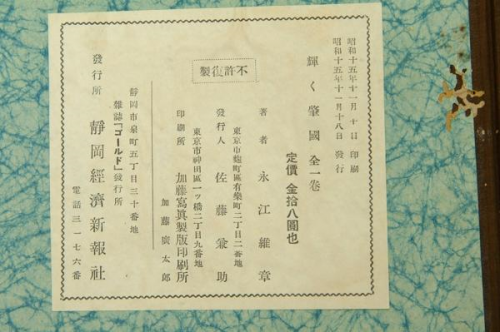 昭和十五年十一月十日印刷
昭和十五年十一月十八日發行
輝く肇國 全一巻
定價 金拾八圓也
著者 永江維章
東京市麹町區有樂町二丁目二番地
發行人 佐藤兼助
東京市神田區一ツ橋二丁目九番地
印刷所 加藤寫眞製版印刷所
加藤廣太郎
不許復製
靜岡市泉町五丁目三十番地
雜誌『ゴールド』發行所
發行所 靜岡經濟新報社
電話三一七六番